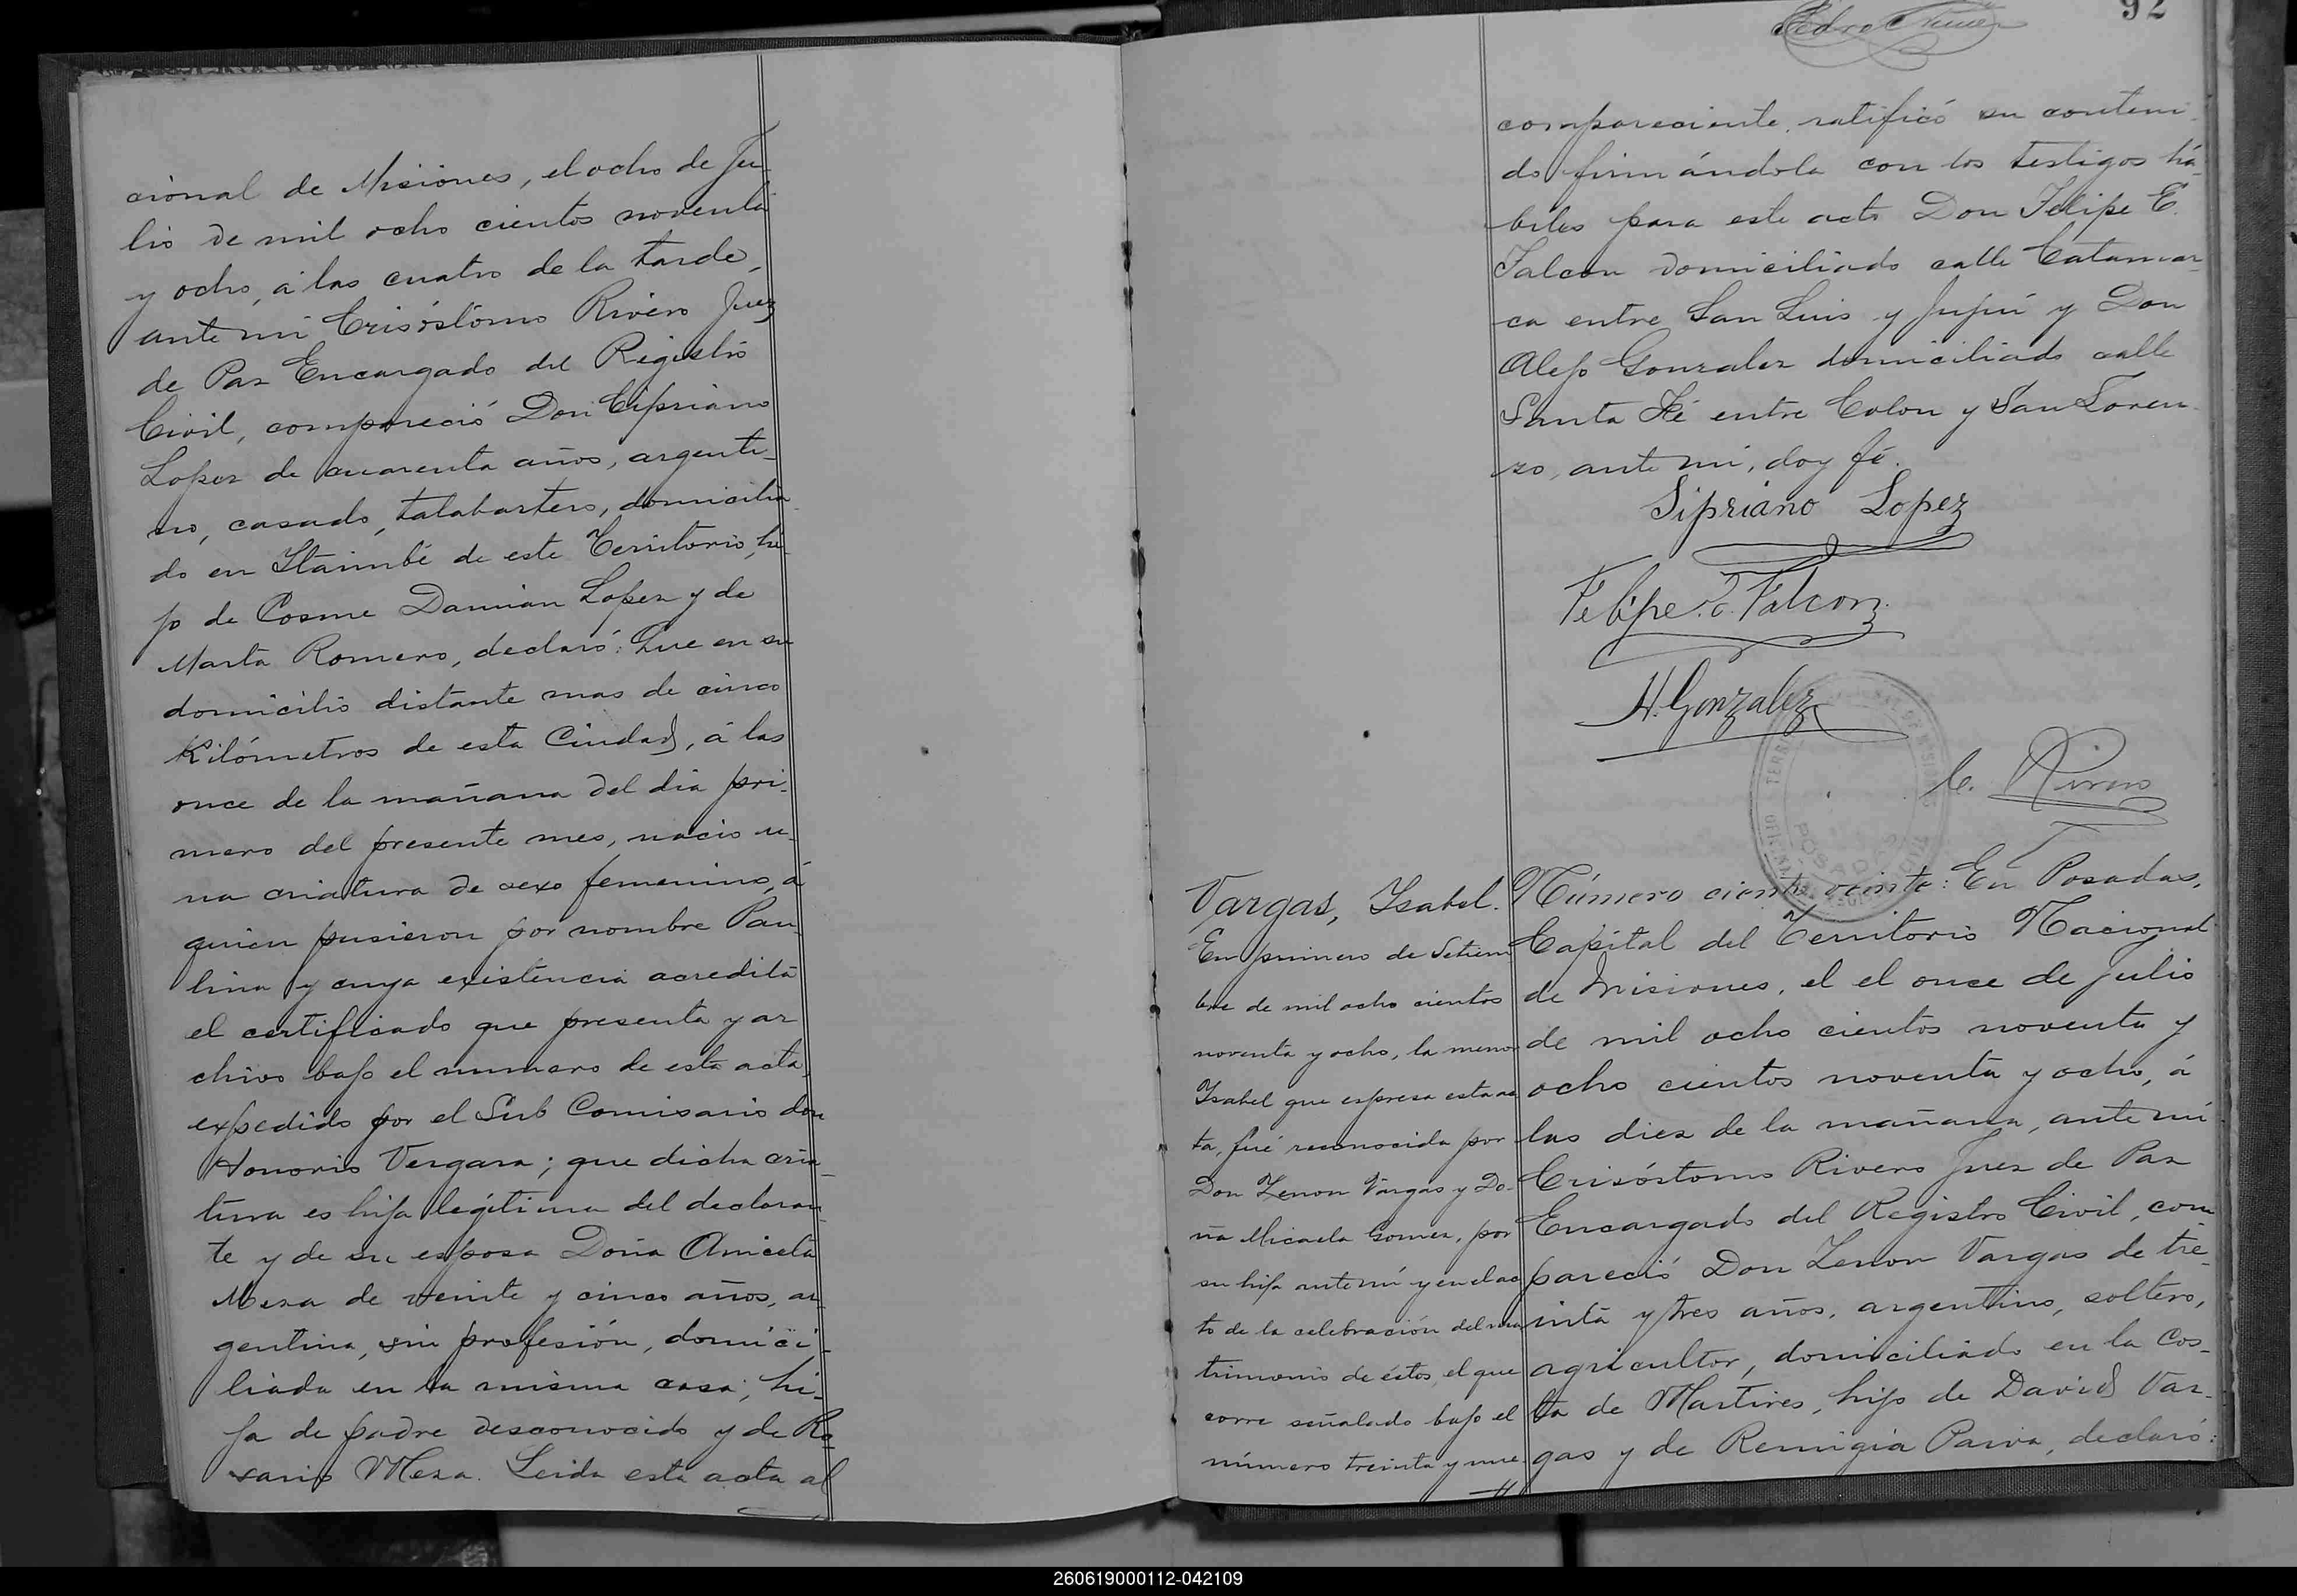 cional de Misiones, el ocho de Ju-
lio de mil ocho cientos noventa
y ocho, á las cuatro de la tarde,
ante mi Crisóstomo Rivero Juez
de Paz Encargado del Registro
Civil, compareció Don Cipriano
Lopez de cuarenta años, argenti-
no, casado, talabartero, domicilia-
do en Itaimbé de este Territorio, hi-
jo de Cosme Damian Lopez y de
Marta Romero, declaró: Que en su
domicilio distante mas de cinco
Kilómetros de esta Ciudad, á las
once de la mañana del dia pri-
mero del presente mes, nació u-
na criatura de sexo femenino, á
quien pusieron por nombre Pau-
lina y cuya existencia acredita
el certificado que presenta y ar
chivo bajo el numero de esta acta,
expedido por el Sub Comisario don
Honorio Vergara; que dicha cria-
tura es hija legítima del declaran-
te y de su esposa Doña Aniceta
Meza de veinte y cinco años, ar-
gentina, sin profesión, domici-
liada en la misma casa; hi-
ja de padre desconocido y de Ro-
sario Meza. Leida esta acta al
92
compareciente, ratificó su conteni-
do firmándola con los testigos há-
biles para este acto Don Felipe E.
Falcon domiciliado calle Catamar-
ca entre San Luis y Jujui y Don
Alejo Gonzalez domiciliado calle
Santa Fé entre Colon y San Loren-
zo, ante mi, doy fé.
Sipriano Lopez
Felipe E. Falcon
A. Gonzalez
C. Rivero
POSADAS
Vargas, Isabel.
En primero de Setiem
bre de mil ocho cientos
noventa y ocho, la menor
Isabel que espresa esta ac
ta, fué reconocida por
Don Zenon Vargas y Do-
ña Micaela Gomez, por
su hija ante mi y en el ac
to de la celebración del ma
trimonio de éstos, el que
corre señalado bajo el
número treinta y nue
Número ciento veinte: En Posadas,
Capital del Territorio Nacional
de Misiones, el el once de Julio
de mil ocho cientos noventa y
ocho cientos noventa y ocho, á
las diez de la mañana, ante mi
Crisóstomo Rivero Juez de Paz
Encargado del Registro Civil, com-
pareció Don Zenon Vargas de tre-
inta y tres años, argentino, soltero,
agricultor, domiciliado en la Cos-
ta de Martires, hijo de David Var-
gas y de Remigia Paiva, declaró:
260619000112-042109